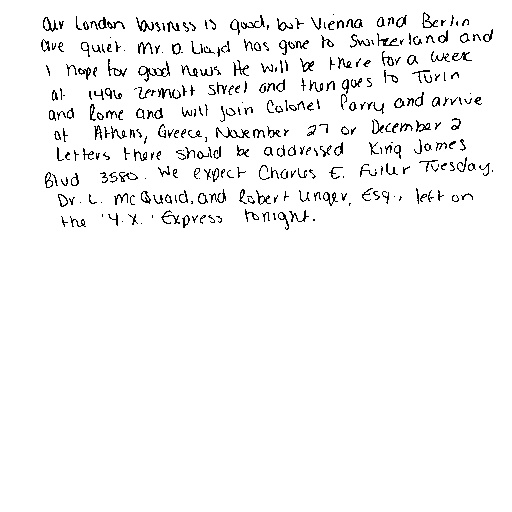 Our London business is good, but Vienna and Berlin
are quiet. Mr. D. Lloyd has gone to Switzerland and
I hope for good news. He will be there for a week
at 1496 Zermott Street and then goes to Turin
and Rome and will join Colonel Parry and arrive
at Athens, Greece, November 27 or December 2
Letters there should be addressed King James
Blvd 3580. We expect Charles E. Fuller Tuesday.
Dr. L. McQuaid, and Robert Unger, Esq., left on
the 'Y.X.' Express tonight.